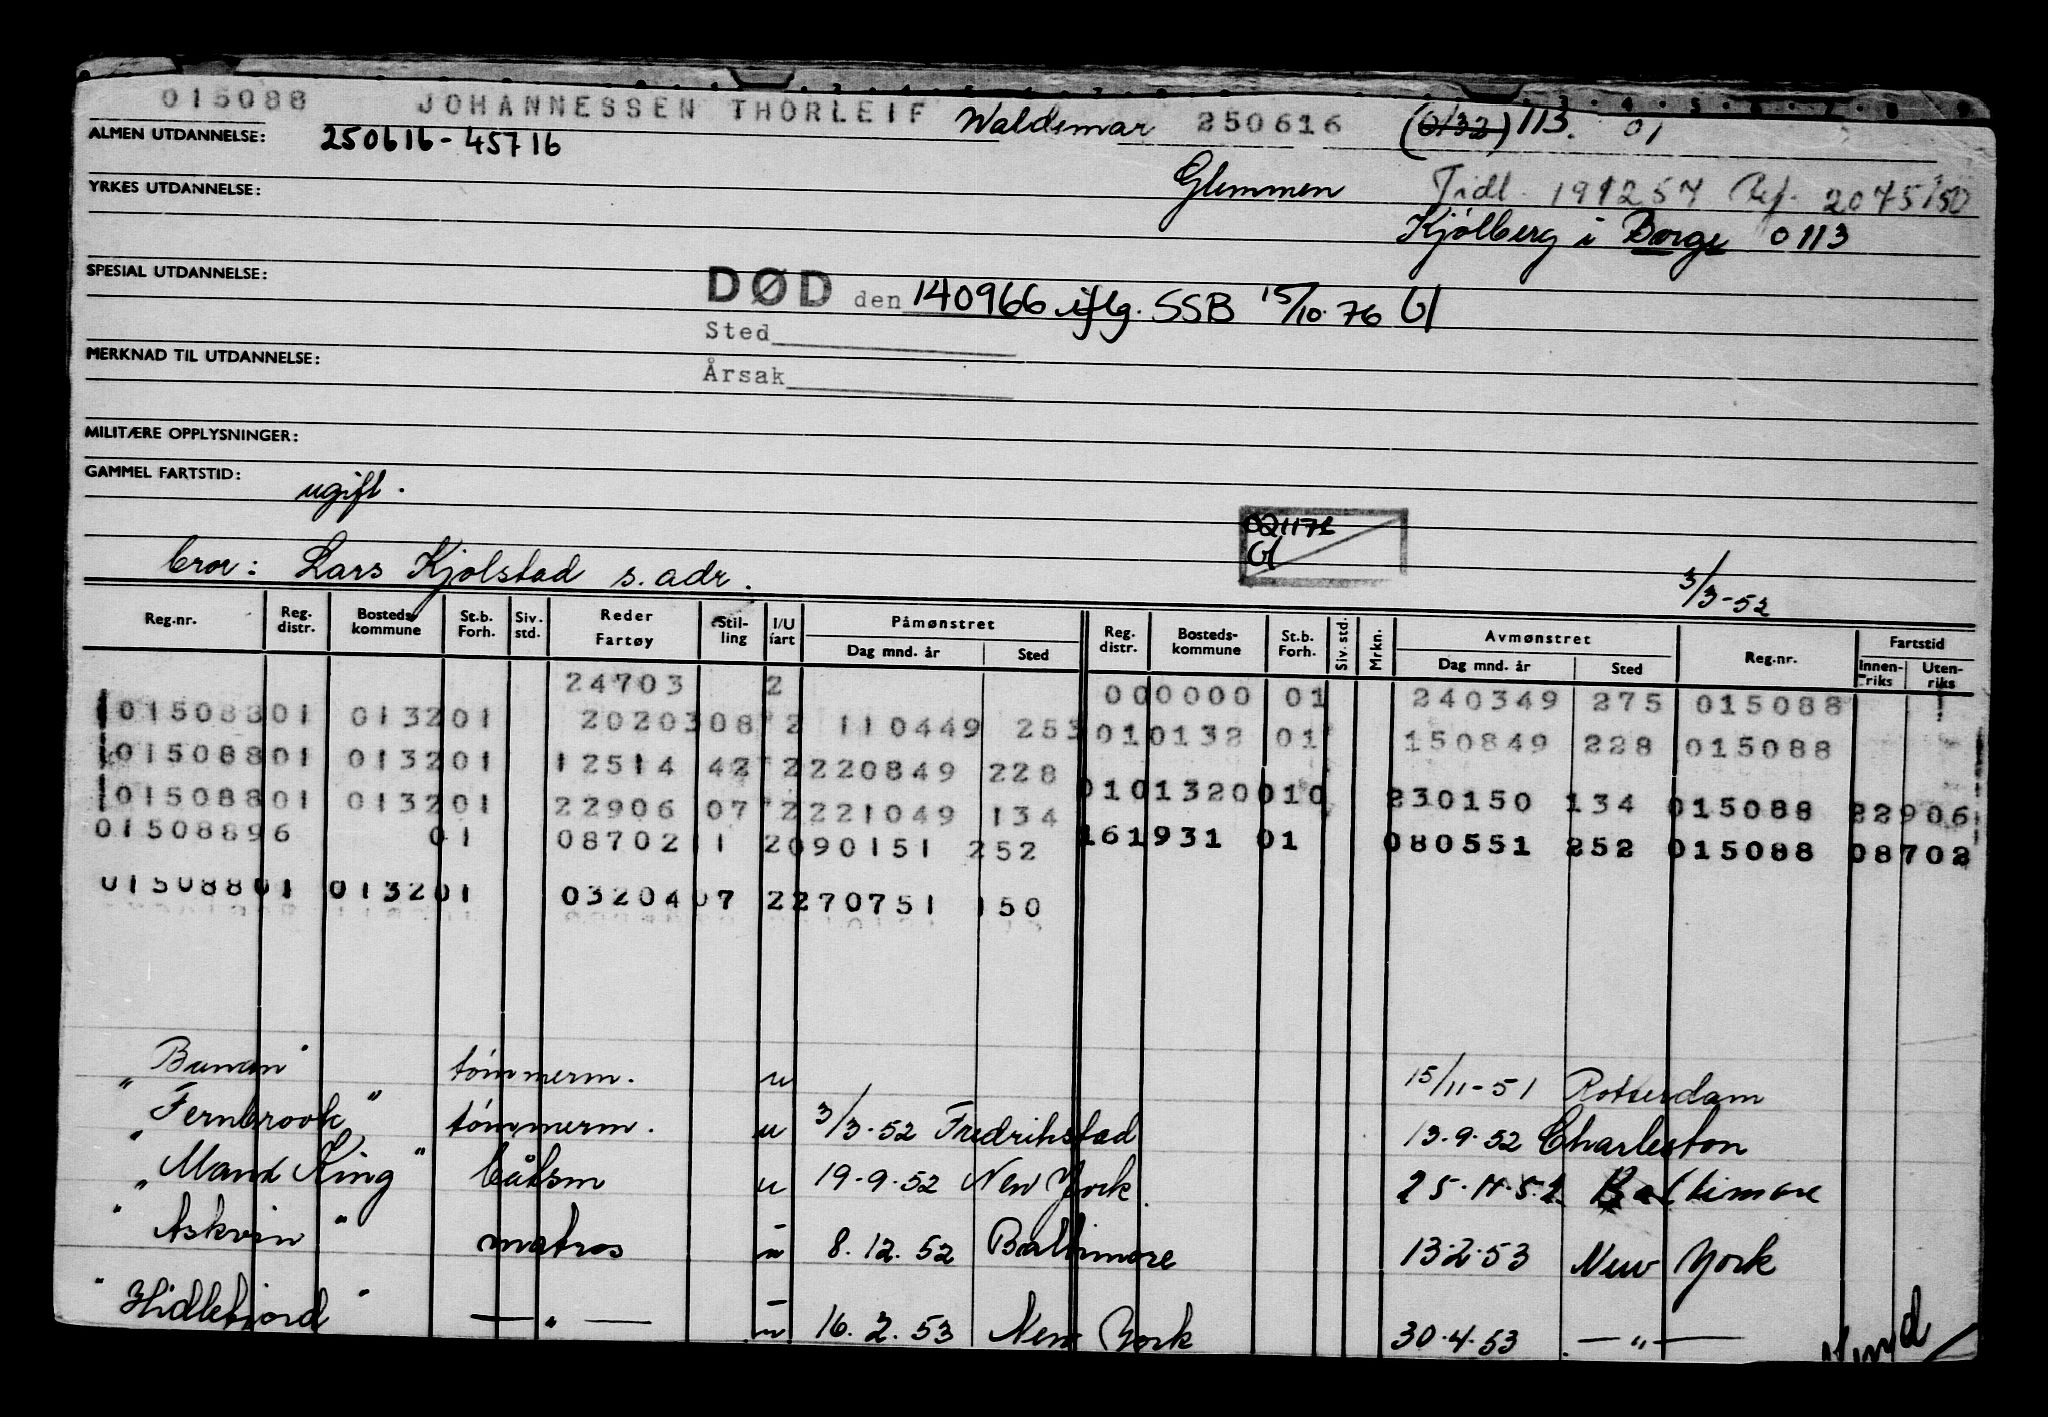 015088 JOHANNESSEN THORLEIF Waldemar 250616 (0132) 113. 01
ALMEN UTDANNELSE: 250616-45716
YRKES UTDANNELSE: Glemmen Tidl. 191257 Ref. 2075/50
Kjølberg i Borge 0113
SPESIAL UTDANNELSE:
DØD den 140966 iflg. SSB 15/10.76
Sted
MERKNAD TIL UTDANNELSE:
Årsak
MILITÆRE OPPLYSNINGER:
GAMMEL FARTSTID: ugift.
021176
bror: Lars Kjølstad s. adr.
3/3-52
Reg.nr. Reg. distr. Bosteds kommune St.b. Forh. Siv. std. Reder Fartøy Stilling I/U fart Påmønstret Dag mnd. år Sted Reg. distr. Bosteds-kommune St.b. Forh. Siv. std. Mrkn. Avmønstret Dag mnd. år Sted Reg.nr. Fartstid Innen-riks Uten-riks
24703 2 000000 01 240349 275 015088
01508801 013201 2020308 2 110449 253 010132 01 150849 228 015088
01508801 013201 12514 42 2220849 228
01508801 013201 22906 07 2221049 134 0101320010 230150 134 015088 22906
01508896 01 08702 11 2090151 252 161931 01 080551 252 015088 08702
01508801 013201 0320407 2270751 150
" " tømmerm. u 15/11-51 Rotterdam
" Fernbrook " tømmerm. u 3/3-52 Fredrikstad 13.9.52 Charleston
" King " båtsm u 19.9.52 New York. 25.11.52 Baltimore
" Askvin " matros u 8.12.52 Baltimore 13.2.53 New York
" Hidlefjord " — " — u 16.2.53 New York 30.4.53 — " —